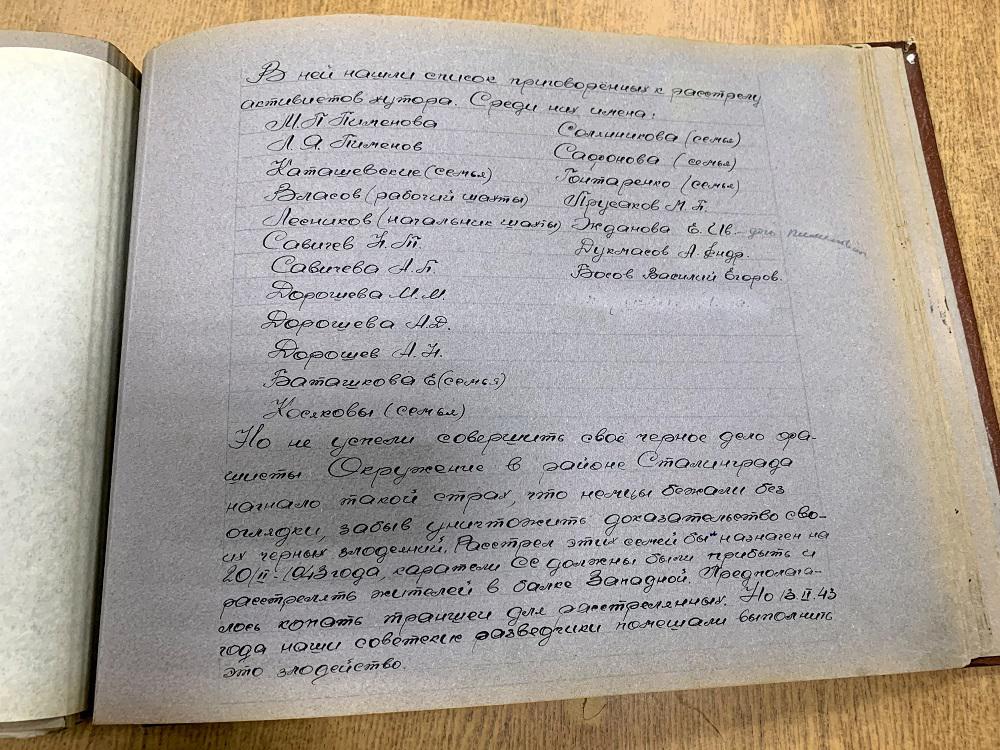 В ней нашли список приговорённых к расстрелу
активистов хутора. Среди них имена:
М.П Пименова
Л. Я. Пименов
Каташевские (семья)
Власов (рабочий шахты)
Лесников (начальник шахты)
Савичев К. Т.
Савичева А. П.
Дорошева М. М.
Дорошева А. Д.
Дорошев А. Н.
Баташкова Е (семья)
Косяковы (семья)
Солянникова (семья)
Сафонова (семья)
Гонтаренко (семья)
Прусаков М. П.
Жданова Е. Ив.
Дукмасов А. Андр.
Восов Василий Егоров.
Но не успели совершить своё черное дело фа-
шисты Окружение в районе Сталинграда
нагнало такой страх, что немцы бежали без
оглядки, забыв уничтожить доказательство сво-
их черных злодеяний. Расстрел этих семей был назначен на
20/II-1943 года, каратели СС должны были прибыть и
расстрелять жителей в балке Западной. Предполага-
лось копать траншеи для расстрелянных. Но 13 II. 43
года наши советские разведчики помешали выполнить
это злодейство.